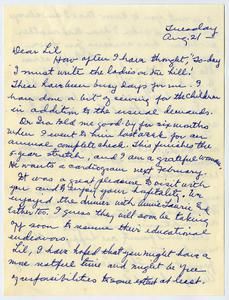 Tuesday
Aug 21
Dear Lil,
How often I have thought, "To-day
I must write the ladies on the hill!"
These have been busy days for me. I
have done a bit of sewing for the children
in addition to the usual demands.
Dr Ira told me good by for six months
when I went to him last week for an
annual complete check. This finishes the
6 year stretch, and I am a grateful woman.
He wants a cardiogram next February.
It was a great pleasure to visit with
you and to enjoy your hospitality. We
enjoyed the dinner with Annie Laurie &
Esther too. I guess they will soon be taking
off soon to resume their educational
endeavors.
Lil, I have hoped that you might have a
more restful time and might be free
of responsibilities to some extent at least.